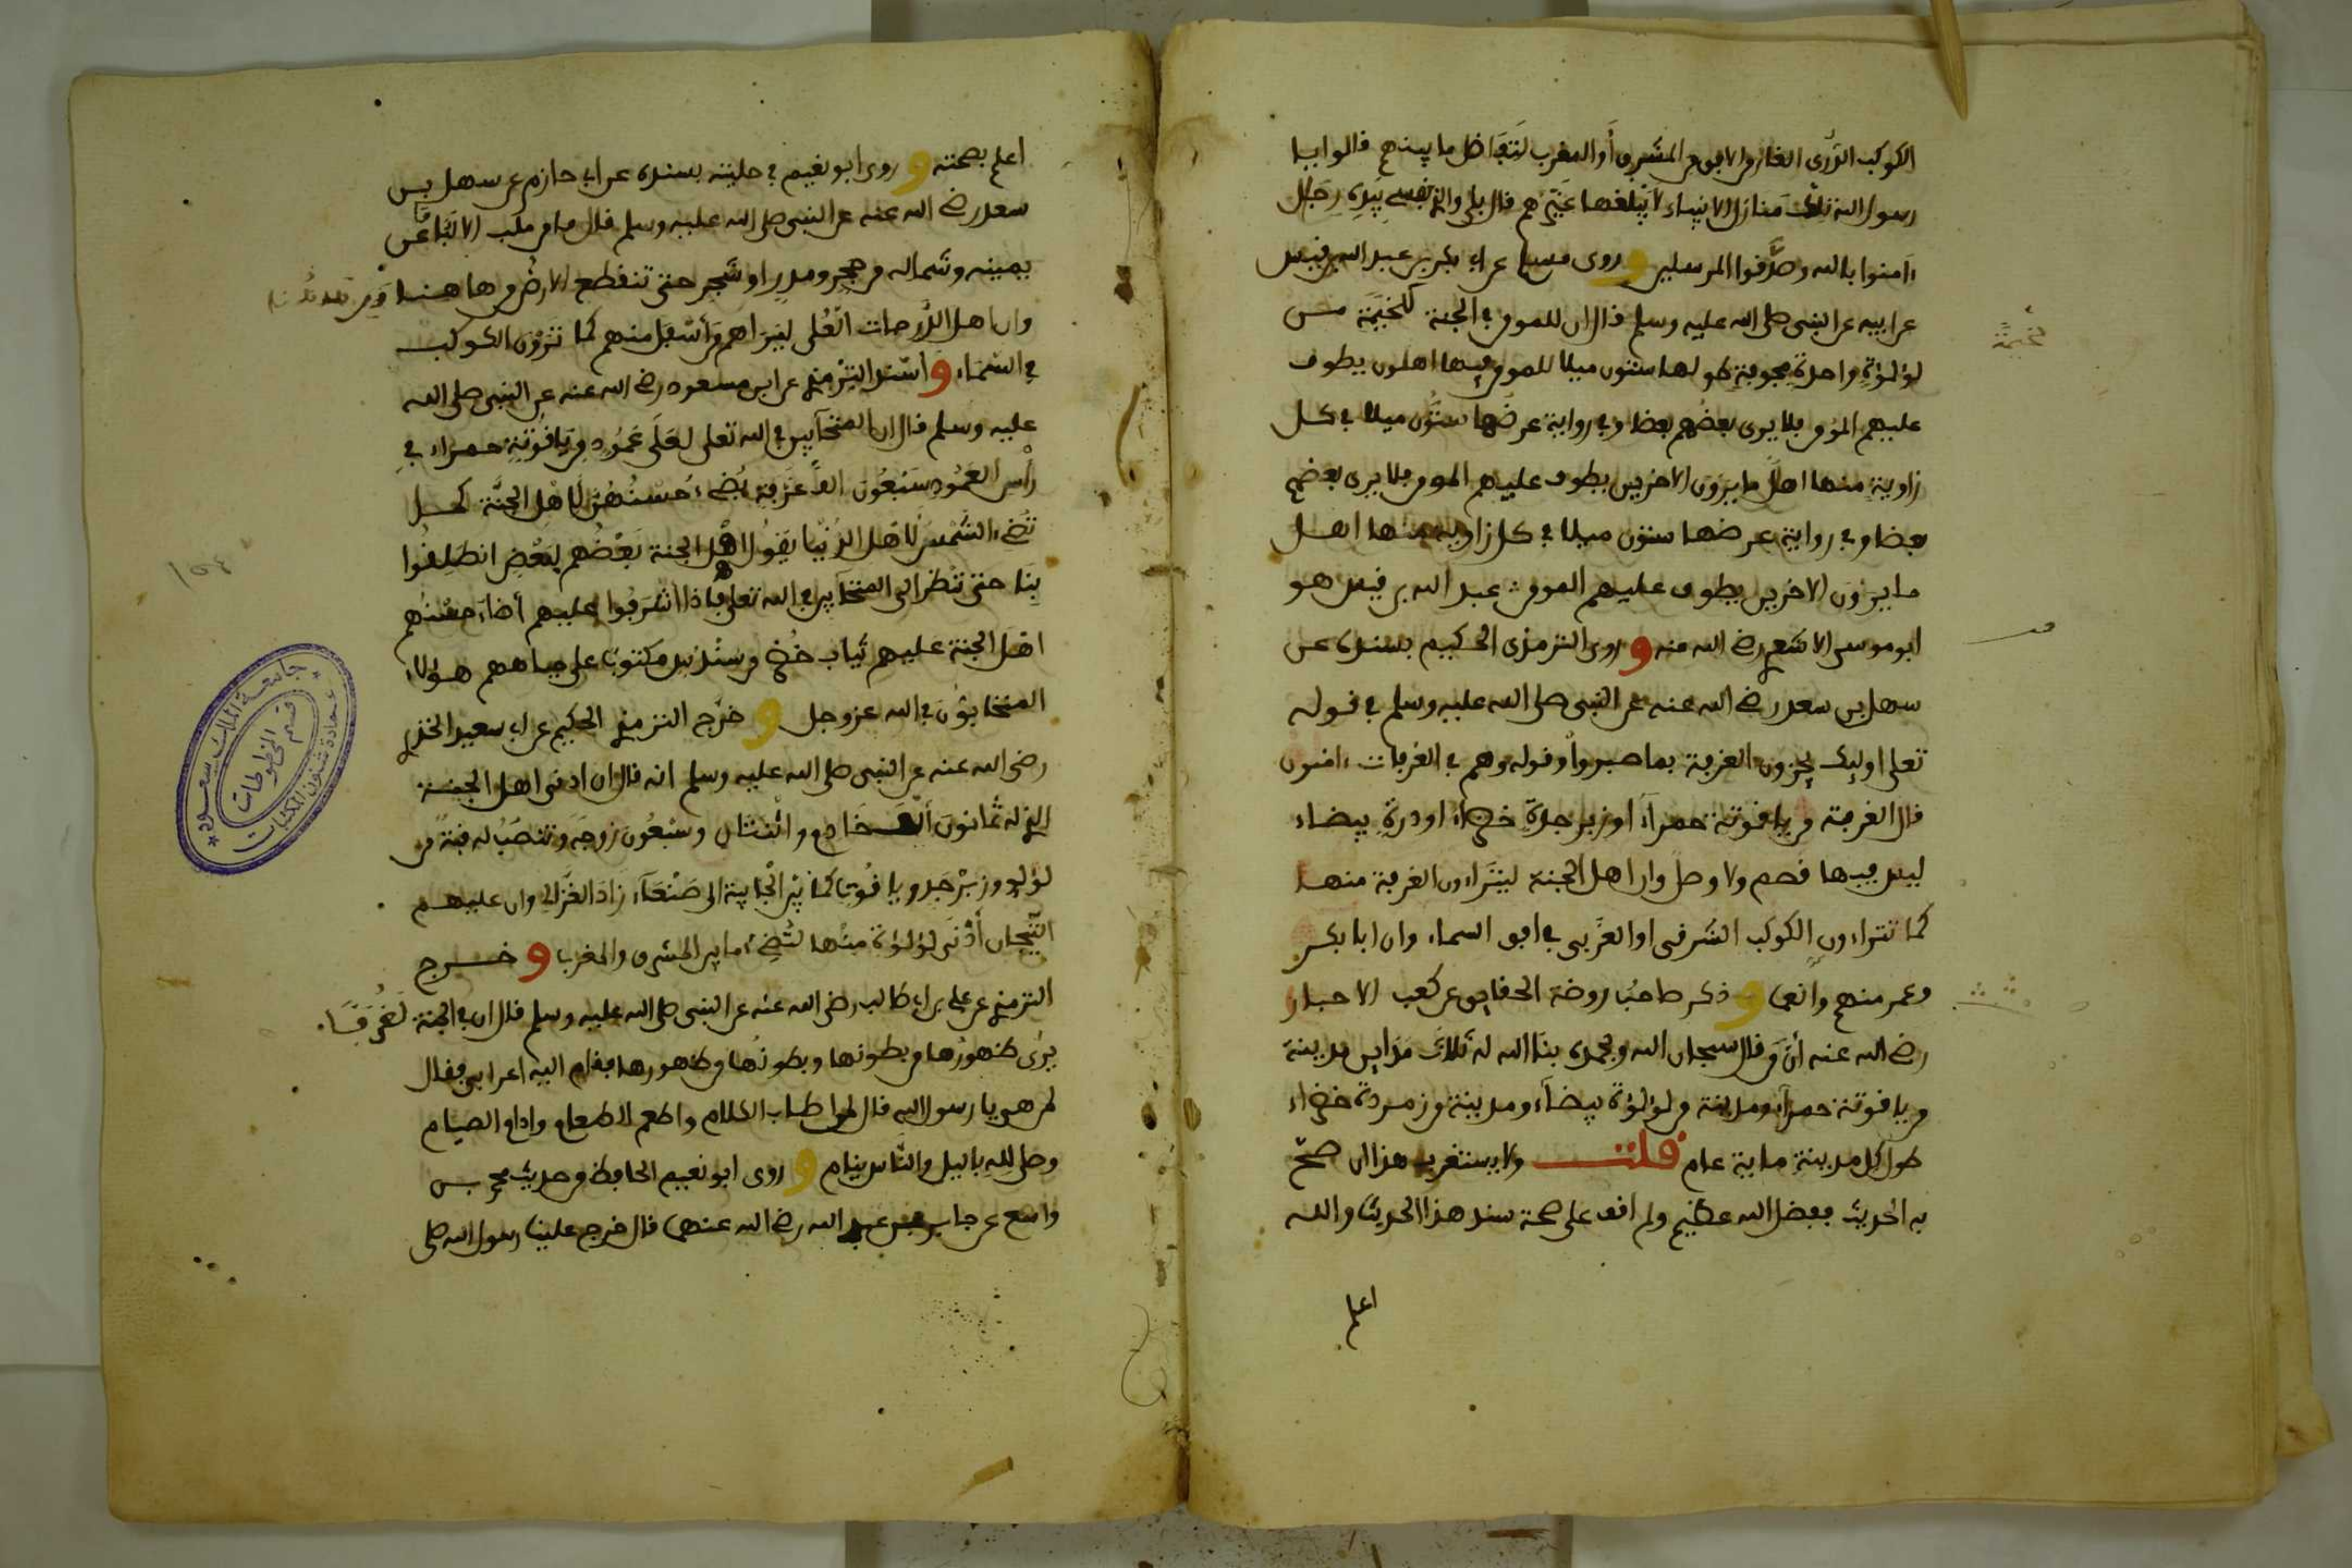 الكوكب الدُّرى الغابر من الافق من المشرق أو المغرب لتفاضل ما بينهم قالوا يا
رسول الله تلك منازل الانبياء لا يبلغها غيرهم قال بلى والذي نفسي بيده رجال
ءامنوا بالله وصدَّقوا المرسلين و روى مسلم عن ابي بكر بن عبد الله بن قيس
عن ابيه عن النبى صلى الله عليه وسلم قال ان للمومن في الجنة لخيمَة مـن
لؤلؤةٍ واحدةٍ مجوفة طولها ستون ميلا للمومن فيها اهلون يطوف
عليهم المومن فلا يرى بعضُهم بعضا وفي رواية عرضُها ستُّون ميلا في كـل
زاويةٍ منها اهلٌ ما يرَون الاخرين يطوف عليهم المومن فلا يرى بعضهم
بعضا وفي رواية عرضها ستون ميلا في كل زاوية منها اهـل
ما يرَون الاخرين يطوف عليهم المومن عبد الله بن قيس هو
ابو موسى الاشعري رضي الله عنه و روى الترمذى الحكيم بسنده عـن
سهل بن سعد رضي الله عنه عن النبى صلى الله عليه وسلم في قـوله
تعلى اوليك يجزون الغرفة بما صبروا وقوله وهم في الغرفات ءامنون
قال الغرفة من ياقوتة حمراء او زبرجدةٍ خضراء او درةٍ بيضاء
ليس فيها فصم ولا وصل وان اهل الجنة ليتراءون الغرفة منهـا
كما تتراءون الكوكب الشرقى او الغربى في افق السماء وان ابا بكـر
وعمر منهم وانعما و ذكر صاحبُ روضة الحقايق عن كعب الاحبار
رضي الله عنه أن من قال سبحان الله وبحمده بنا الله له ثلاث مداين مدينة
من ياقوتة حمراء ومدينة من لؤلؤة بيضاء ومدينة من زمردة خضراء
طول كل مدينةٍ ماية عام قلت ولا يستغرب هذا ان صحّ
به الحديث ففضل الله عظيم ولم اقف على صحة سند هذا الحديث والله
اعلم
اعلم بصحته و روى ابو نعيم في حليته بسنده عن ابي حازم عن سهل بـن
سعد رضي الله عنه عن النبى صلى الله عليه وسلم قال ما من ملب الا لبا ما عن
يمينه وشماله من حجر ومدرٍ او شجر حتى تنقطع الارض من هاهنـا
وان اهل الدَّرجات العُلى ليراهم مَن أسفل منهم كما ترَون الكوكب
في السّمَاء و اسند الترمذي عن ابن مسعود رضي الله عنه عن النبى صلى الله
عليه وسلم قال ان المتحآبين في الله تعلى لعَلَى عَمُودٍ من ياقوتةٍ حمراء في
رأسِ العَمُودِ سَبْعُون الفَ غرفة يُضيء حُسْنُهُن لأهلِ الجنَّة كمـا
تضيء الشَّمسُ لأهل الدُّنْيا يَقُول اهْل الجنة بَعْضُهم لبَعْضٍ انطَلِقُوا
بِنَا حتى نَنْظر الى المتحآبين في الله تعلى فاذا أشرفوا عليهم أضاء حُسْنُهم
اهْل الجنة عليهم ثياب خُضر من سُنْدسٍ مكتوبٌ على جباههم هـؤلاء
المتحابّون في الله عزوجل و خرّج الترمذي الحكيم عن ابي سعيد الخدري
رضى الله عنه عن النبى صلى الله عليه وسلم انه قال ان ادنى اهـل الجنـة
الذي له ثمانُونَ ألفَ خَادِمٍ واثنتان وسبْعُون زوجَة وتنصَبُ له قبّةٌ من
لؤلؤ وزبَرْجَد وياقُوت كما بيْن الجابية الى صَنْعَآء زادَ الغَزَّالي وان عليهـم
التّيجان أدْنَى لؤلؤة منْها لتُضيء ما بين المشرق والمغرب و خــرج
الترمذي عن علي بن ابي طالب رضي الله عنه عن النبى صلى الله عليه وسلم قال ان في الجنة لَغُرَفًا
يرَى ظهورُها من بطونها وبطونُها من ظهورها فقام اليه اعرابي فقال
لمن هي يا رسول الله قال لمن اطاب الكلام واطعم الطعام وادام الصيام
وصلى لله باليل والنّاس نيام و روى ابو نعيم الحافظ من حديث محمد بـن
واسع عن جابر بن عبد الله رضي الله عنهما قال خرج علينا رسول الله صلى
جامعة الملك سعود
عمادة شئون المكتبات
قسم المخطوطات